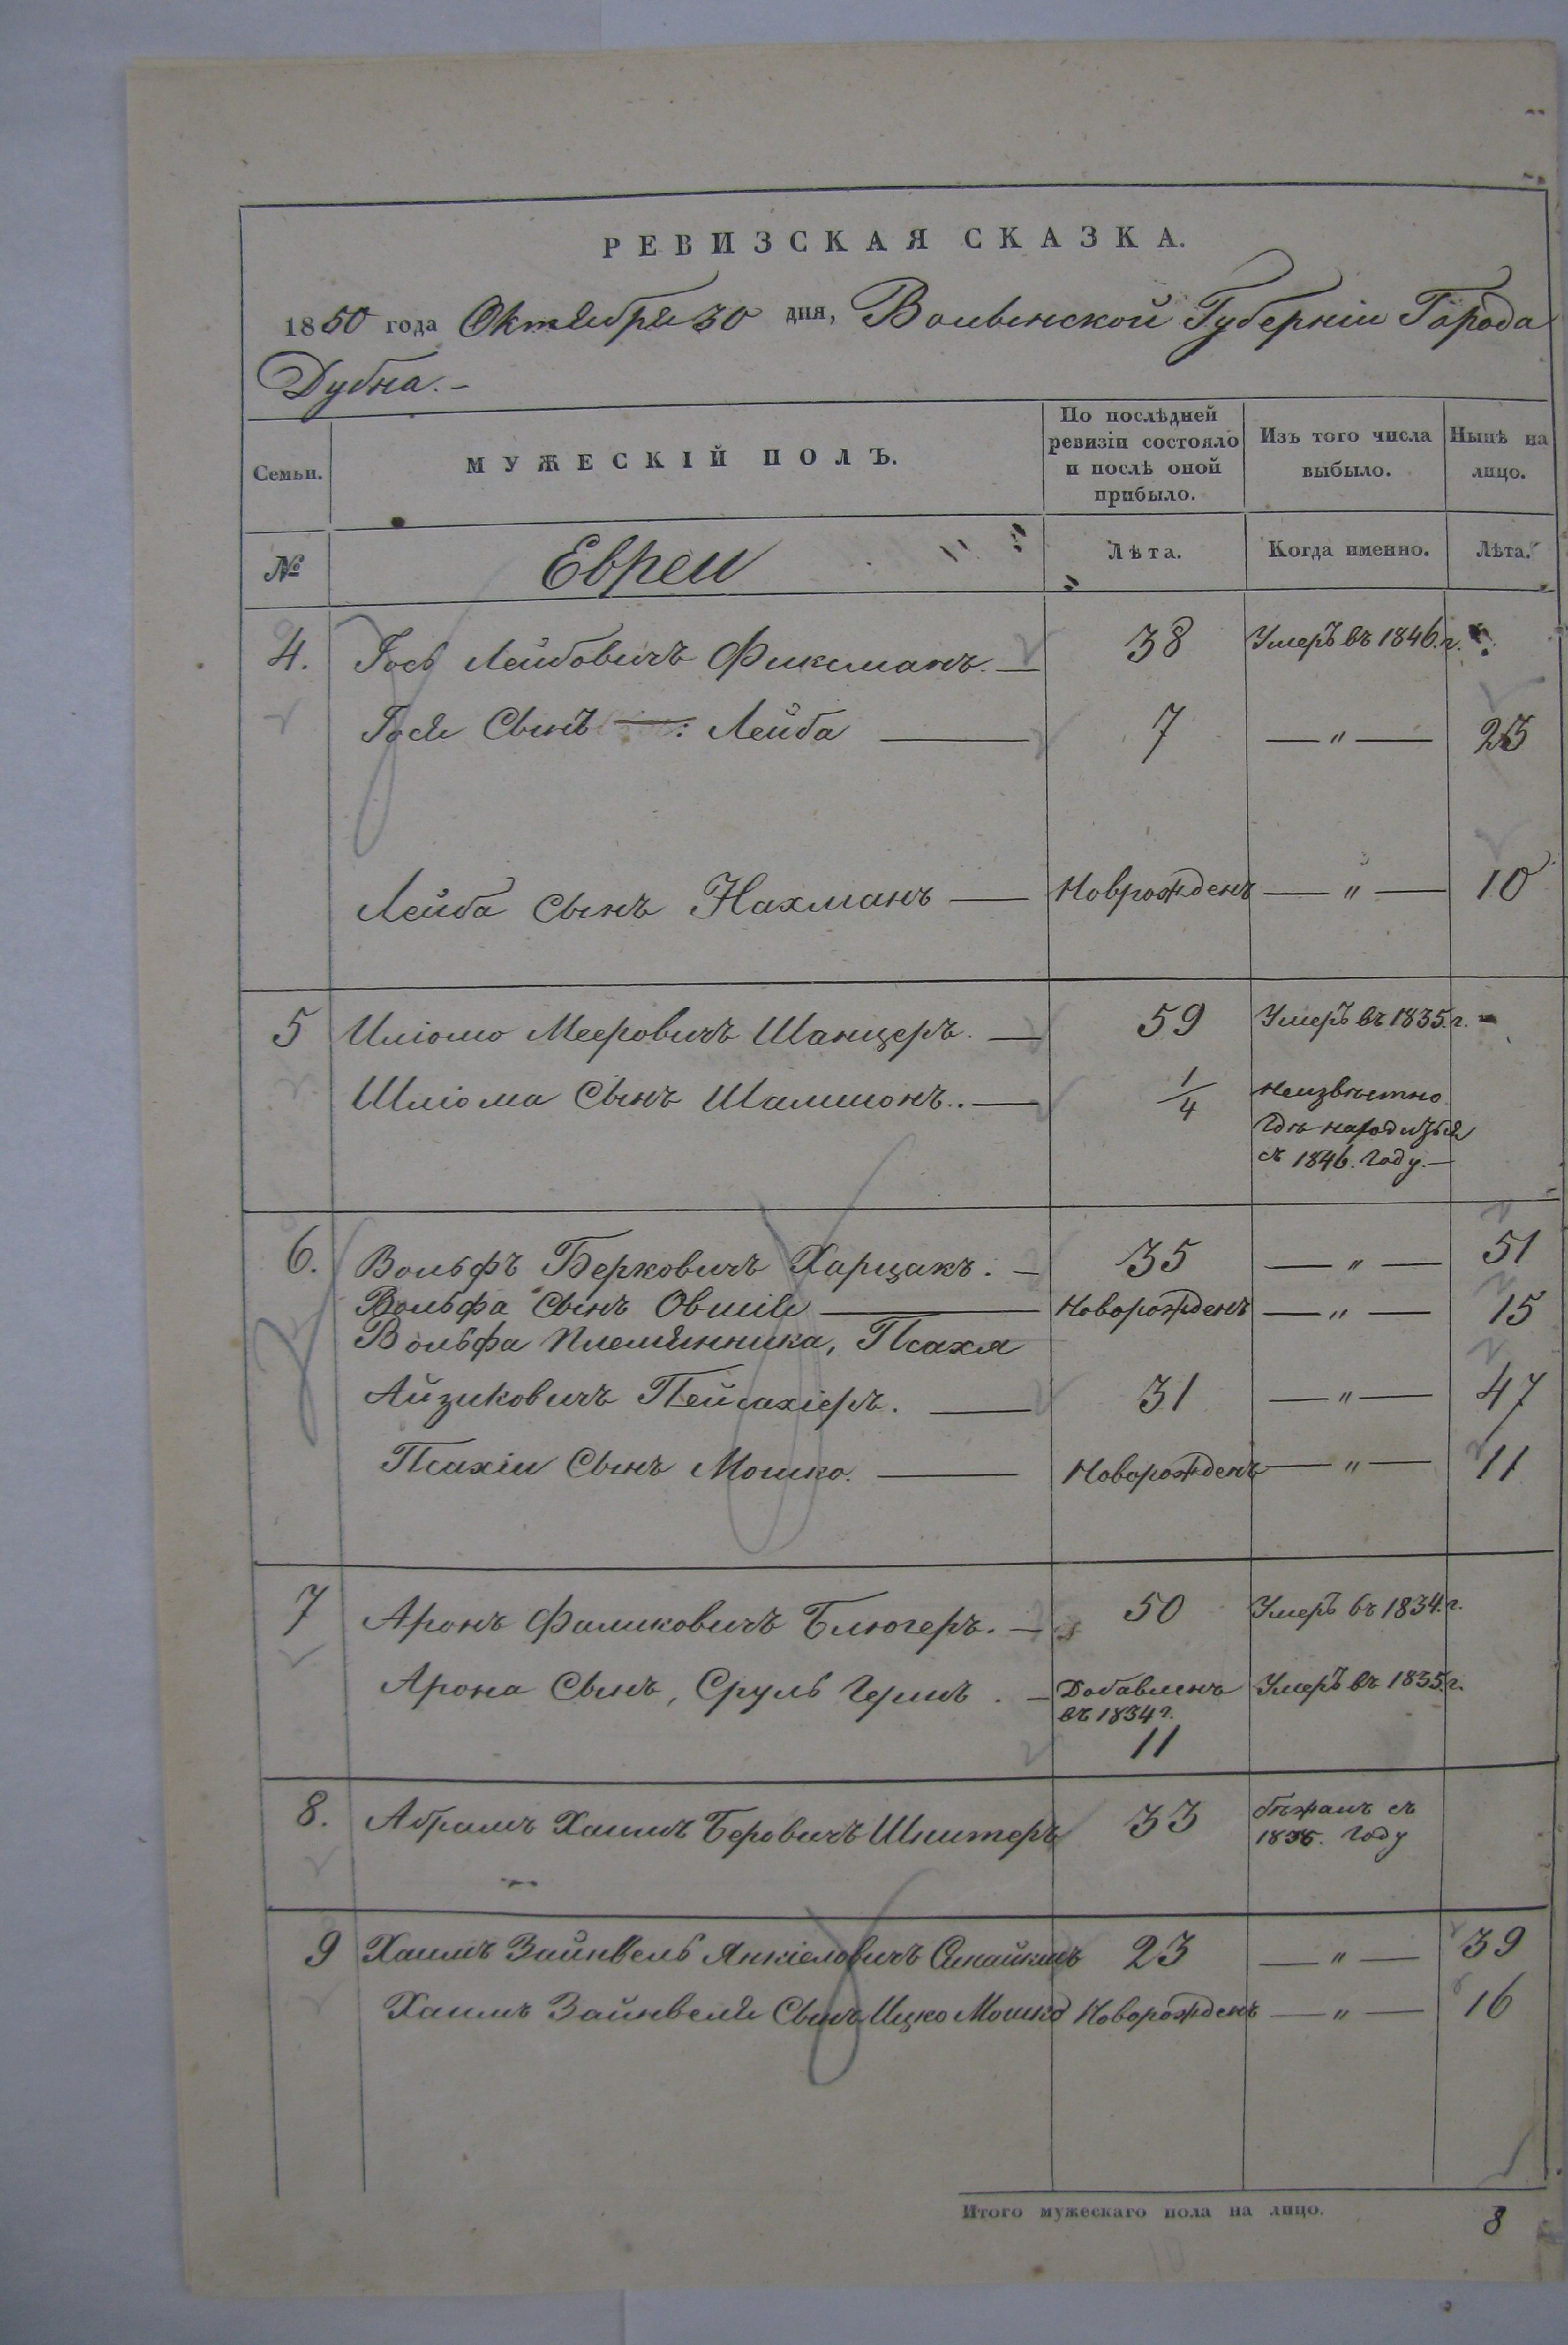 РЕВИЗСКАЯ СКАЗКА.
1850 года Октября 30 дня, Волынской Губерніи Города
Дубна.-
Семьи. МУЖЕСКІЙ ПОЛЪ. По послѣдней ревизіи состояло и послѣ оной прибыло. Изъ того числа выбыло. Нынѣ на лицо.
№ Евреи Лѣта. Когда именно. Лѣта.
4. Іось Лейбовичъ Фиксманъ. — 38 Умеръ въ 1846.г.
Іося Сынъ —: Лейба — 7 — " — 23
Лейба Сынъ Нахманъ — Новрожденъ — " — 10
5 Шліомо Мееровичъ Шанцеръ. — 59 Умеръ въ 1835.г. -
Шліома Сынъ Шлимонъ.. — 1/4 неизвѣстно
гдѣ находится
съ 1846. Году.—
6. Вольфъ Берковичъ Харцакъ. — 35 — " — 51
Вольфа Сынъ Овшія — Новорожденъ — " — 15
Вольфа Племянника, Псахя
Айзиковичъ Пейсахіеръ. — 31 — " — 47
Псахіи Сынъ Мошко. — Новорожденъ — " — 11
7 Аронъ Фаликовичъ Блюгеръ. — 50 Умеръ въ 1834.г.
Арона Сынъ, Сруль Гершъ. — Добавленъ Умеръ въ 1835.г.
въ 1834 г.
11
8. Абрамъ Хаимъ Беровичъ Шнитеръ 33 бѣжалъ съ
1835. Году
9 Хаимъ Зайнвель Янкіеловичъ 23 — " — 39
Хаимъ Зайнвеля Сынъ Ицко Мошко Новорожденъ — " — 16
Итого мужескаго пола на лицо. 8